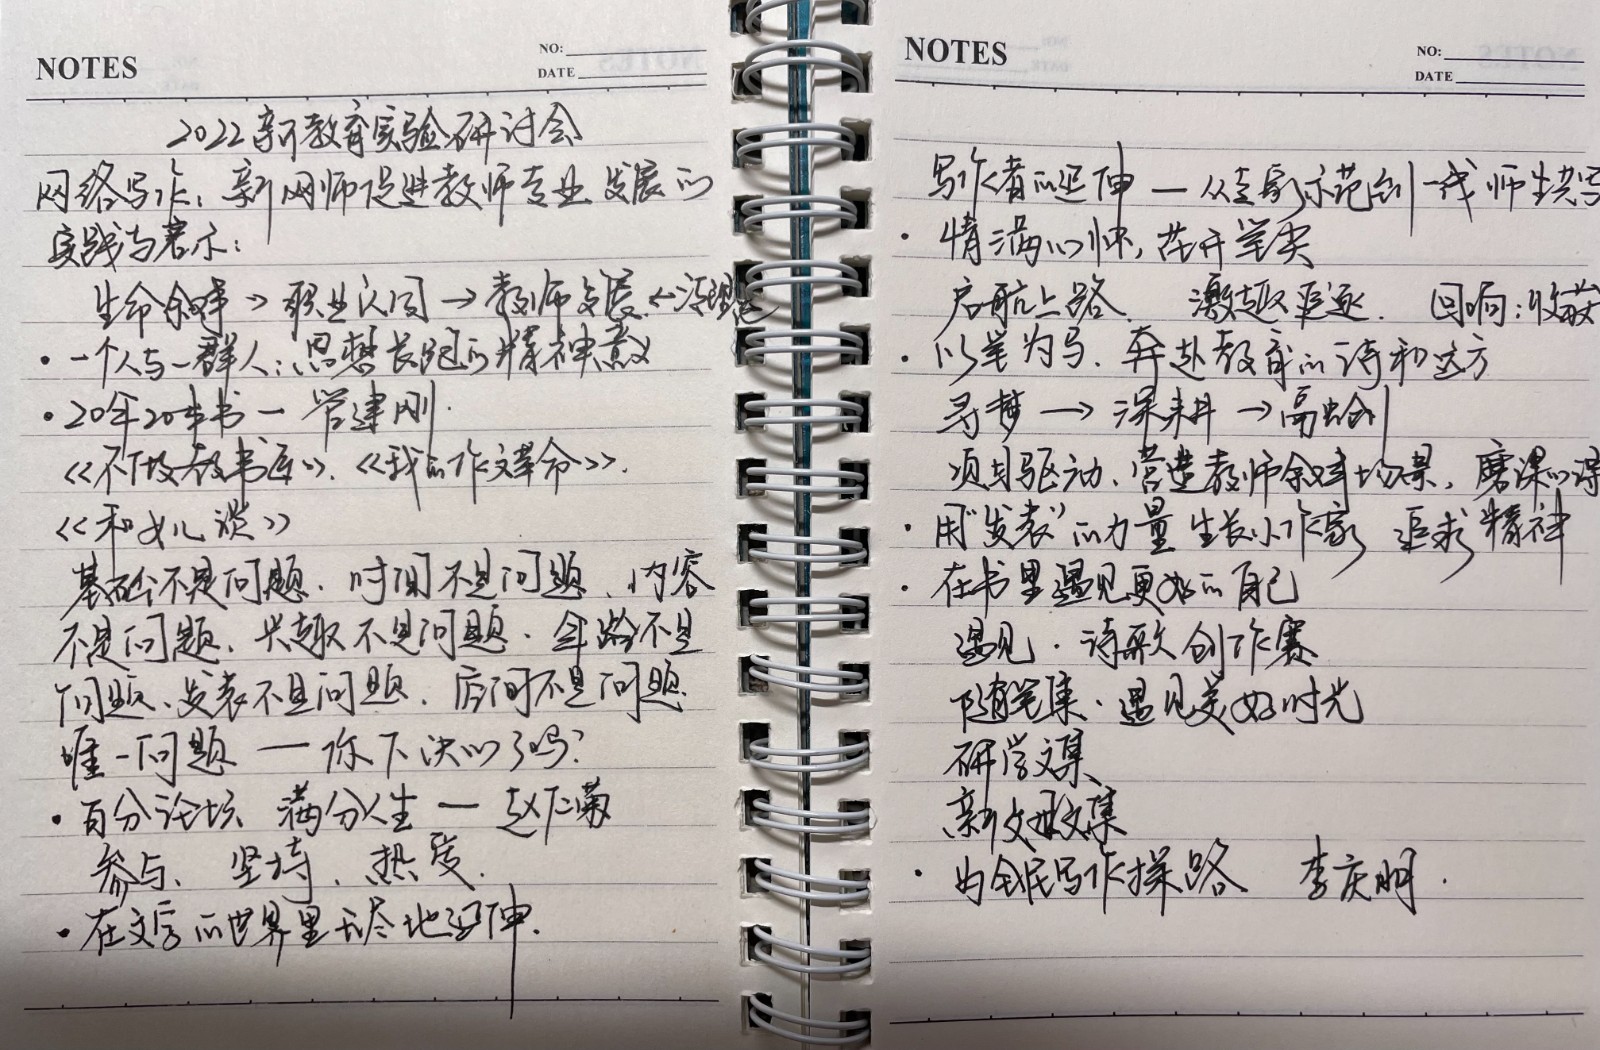 NOTES
NO:
DATE
2022新教育实验研讨会
网络写作：新网师促进教师专业发展的
实践与启示：
生命叙事→职业认同→教师发展←
·一个人与一群人：思想长跑的精神意义
·20年20本书一管建刚.
《不做教书匠》.《我的作文革命》.
《和女儿谈》
基础不是问题.时间不是问题、内容
不是问题、兴趣不是问题.年龄不是
问题、发表不是问题.房间不是问题.
唯一问题——你下决心了吗?
·百分论坛 满分人生—赵仁菊
参与、坚持、热爱.
·在文字的世界里无尽地延伸.
NOTES
NO:
DATE
写作者的延伸—从专家示范到一线师生共写
·情满心怀,花开笔尖
启航上路、激趣追逐.回响:收获
·以笔为马.奔赴教育的诗和远方
寻梦→深耕→高
项目驱动、营造教师叙事场景,磨课心得
·用“发表”的力量生长小作家 追求精神
·在书里遇见更好的自己
遇见·诗歌创作赛
随笔集·遇见美好时光
研学文集
新父母文集
·为全民写作探路 李庆明.